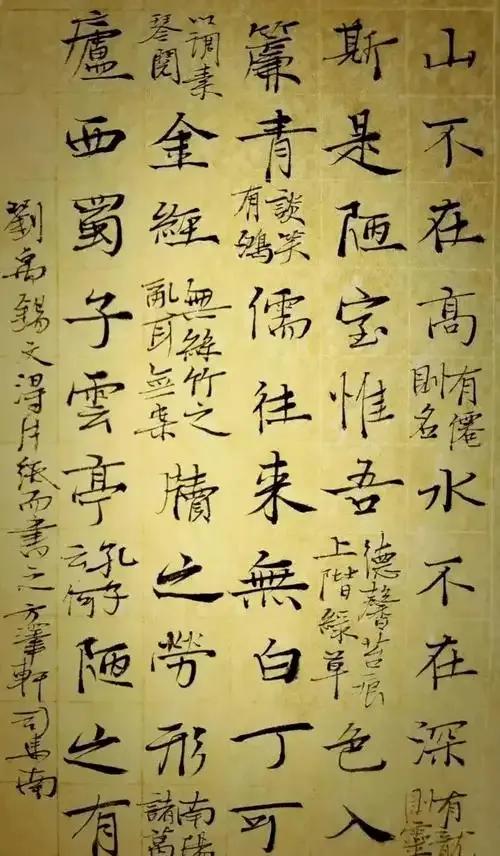 山不在高有僊則名水不在深有龍則靈
斯是陋室惟吾德馨苔痕上階綠草色入
簾青談笑有鴻儒往来無白丁可
以調素琴閱金經無絲竹之亂耳無案牘之勞形南陽諸葛
廬西蜀子雲亭孔子云何陋之有
劉禹錫文得片紙而書之方軒司馬南